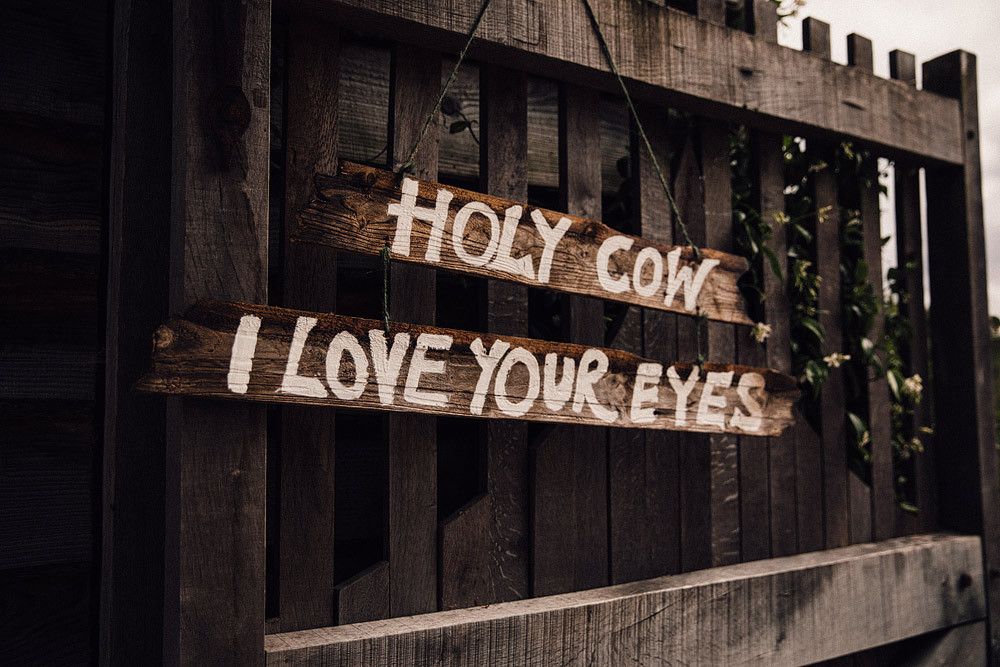 HOLY COW
I LOVE YOUR EYES